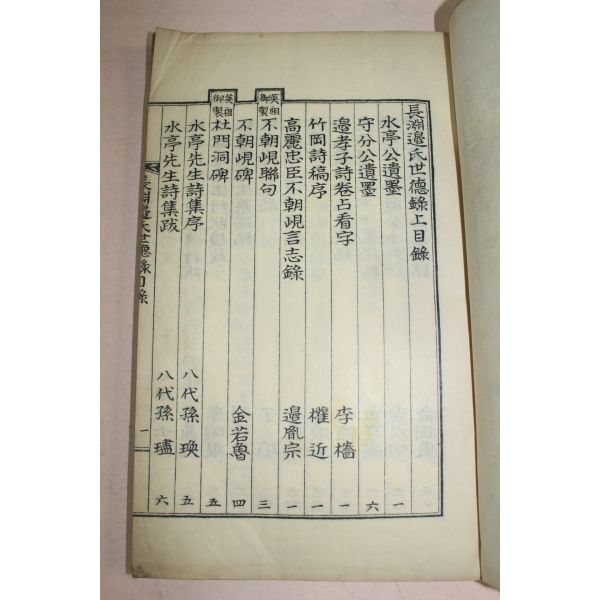 長淵邊氏世德錄上目錄
水亭公遺墨 一
守分公遺墨 六
邊孝子詩卷占看字 李樯 一
竹岡詩稿序 權近 一
高麗忠臣不朝峴言志錄 邊胤宗 一
英祖御製 不朝峴聯句 三
不朝峴碑 金若魯 四
英祖御製 杜門洞碑 五
水亭先生詩集序 八代孫 瑍 五
水亭先生詩集跋 八代孫 璶 六
長淵邊氏世德錄目錄 一